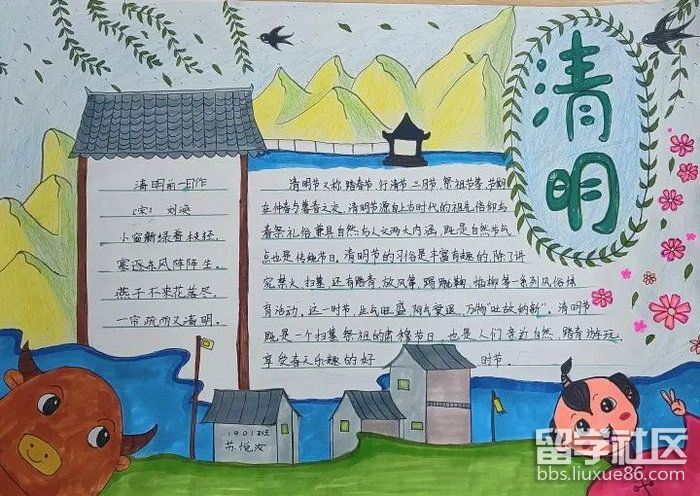 清明
清明前一日作
(宋) 刘
小窗新绿着枝
寒逐东风阵阵生
燕子不来花落尽
一帘疏雨又清明.
清明节又称踏春节、行清节、三月节、祭祖节等,节期
在仲春与暮春之交,清明节源自上古时代的祖先信仰与
春祭礼俗,兼具自然与人文两大内涵,既是自然节气
点也是传统节日,清明节的习俗是丰富有趣的,除了讲
究禁火,扫墓,还有踏青,放风筝,踢蹴鞠,插柳等一系列风俗体
育活动,这一时节,生气旺盛,阳气衰退,万物"吐故纳新",清明节
既是一个扫墓祭祖的肃穆节日,也是人们亲近自然,踏青游玩
享受春天乐趣的好 时节.
1901班
苏悦汝
留学社区
bbs.liuxue86.com